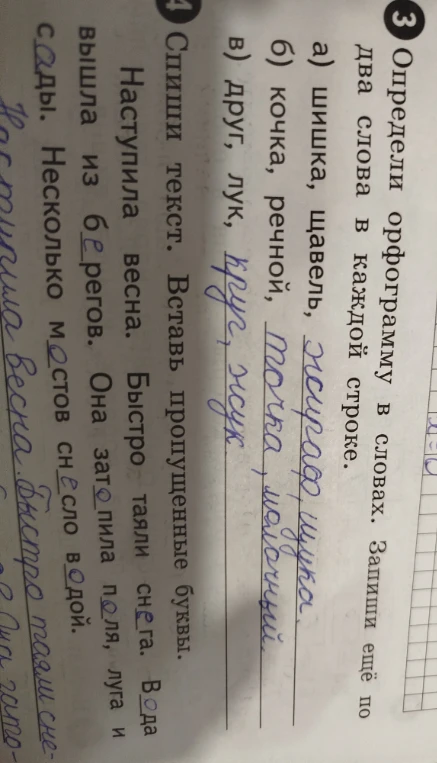 3 Определи орфограмму в словах. Запиши ещё по
два слова в каждой строке.
а) шишка, щавель, жираф, щука.
б) кочка, речной, точка, молочный.
в) друг, лук, круг, жук.
4 Спиши текст. Вставь пропущенные буквы.
Наступила весна. Быстро таяли снега. Вода
вышла из берегов. Она затопила поля, луга и
сады. Несколько мостов снесло водой.
Наступила весна. Быстро таяли сне-
Она зато-